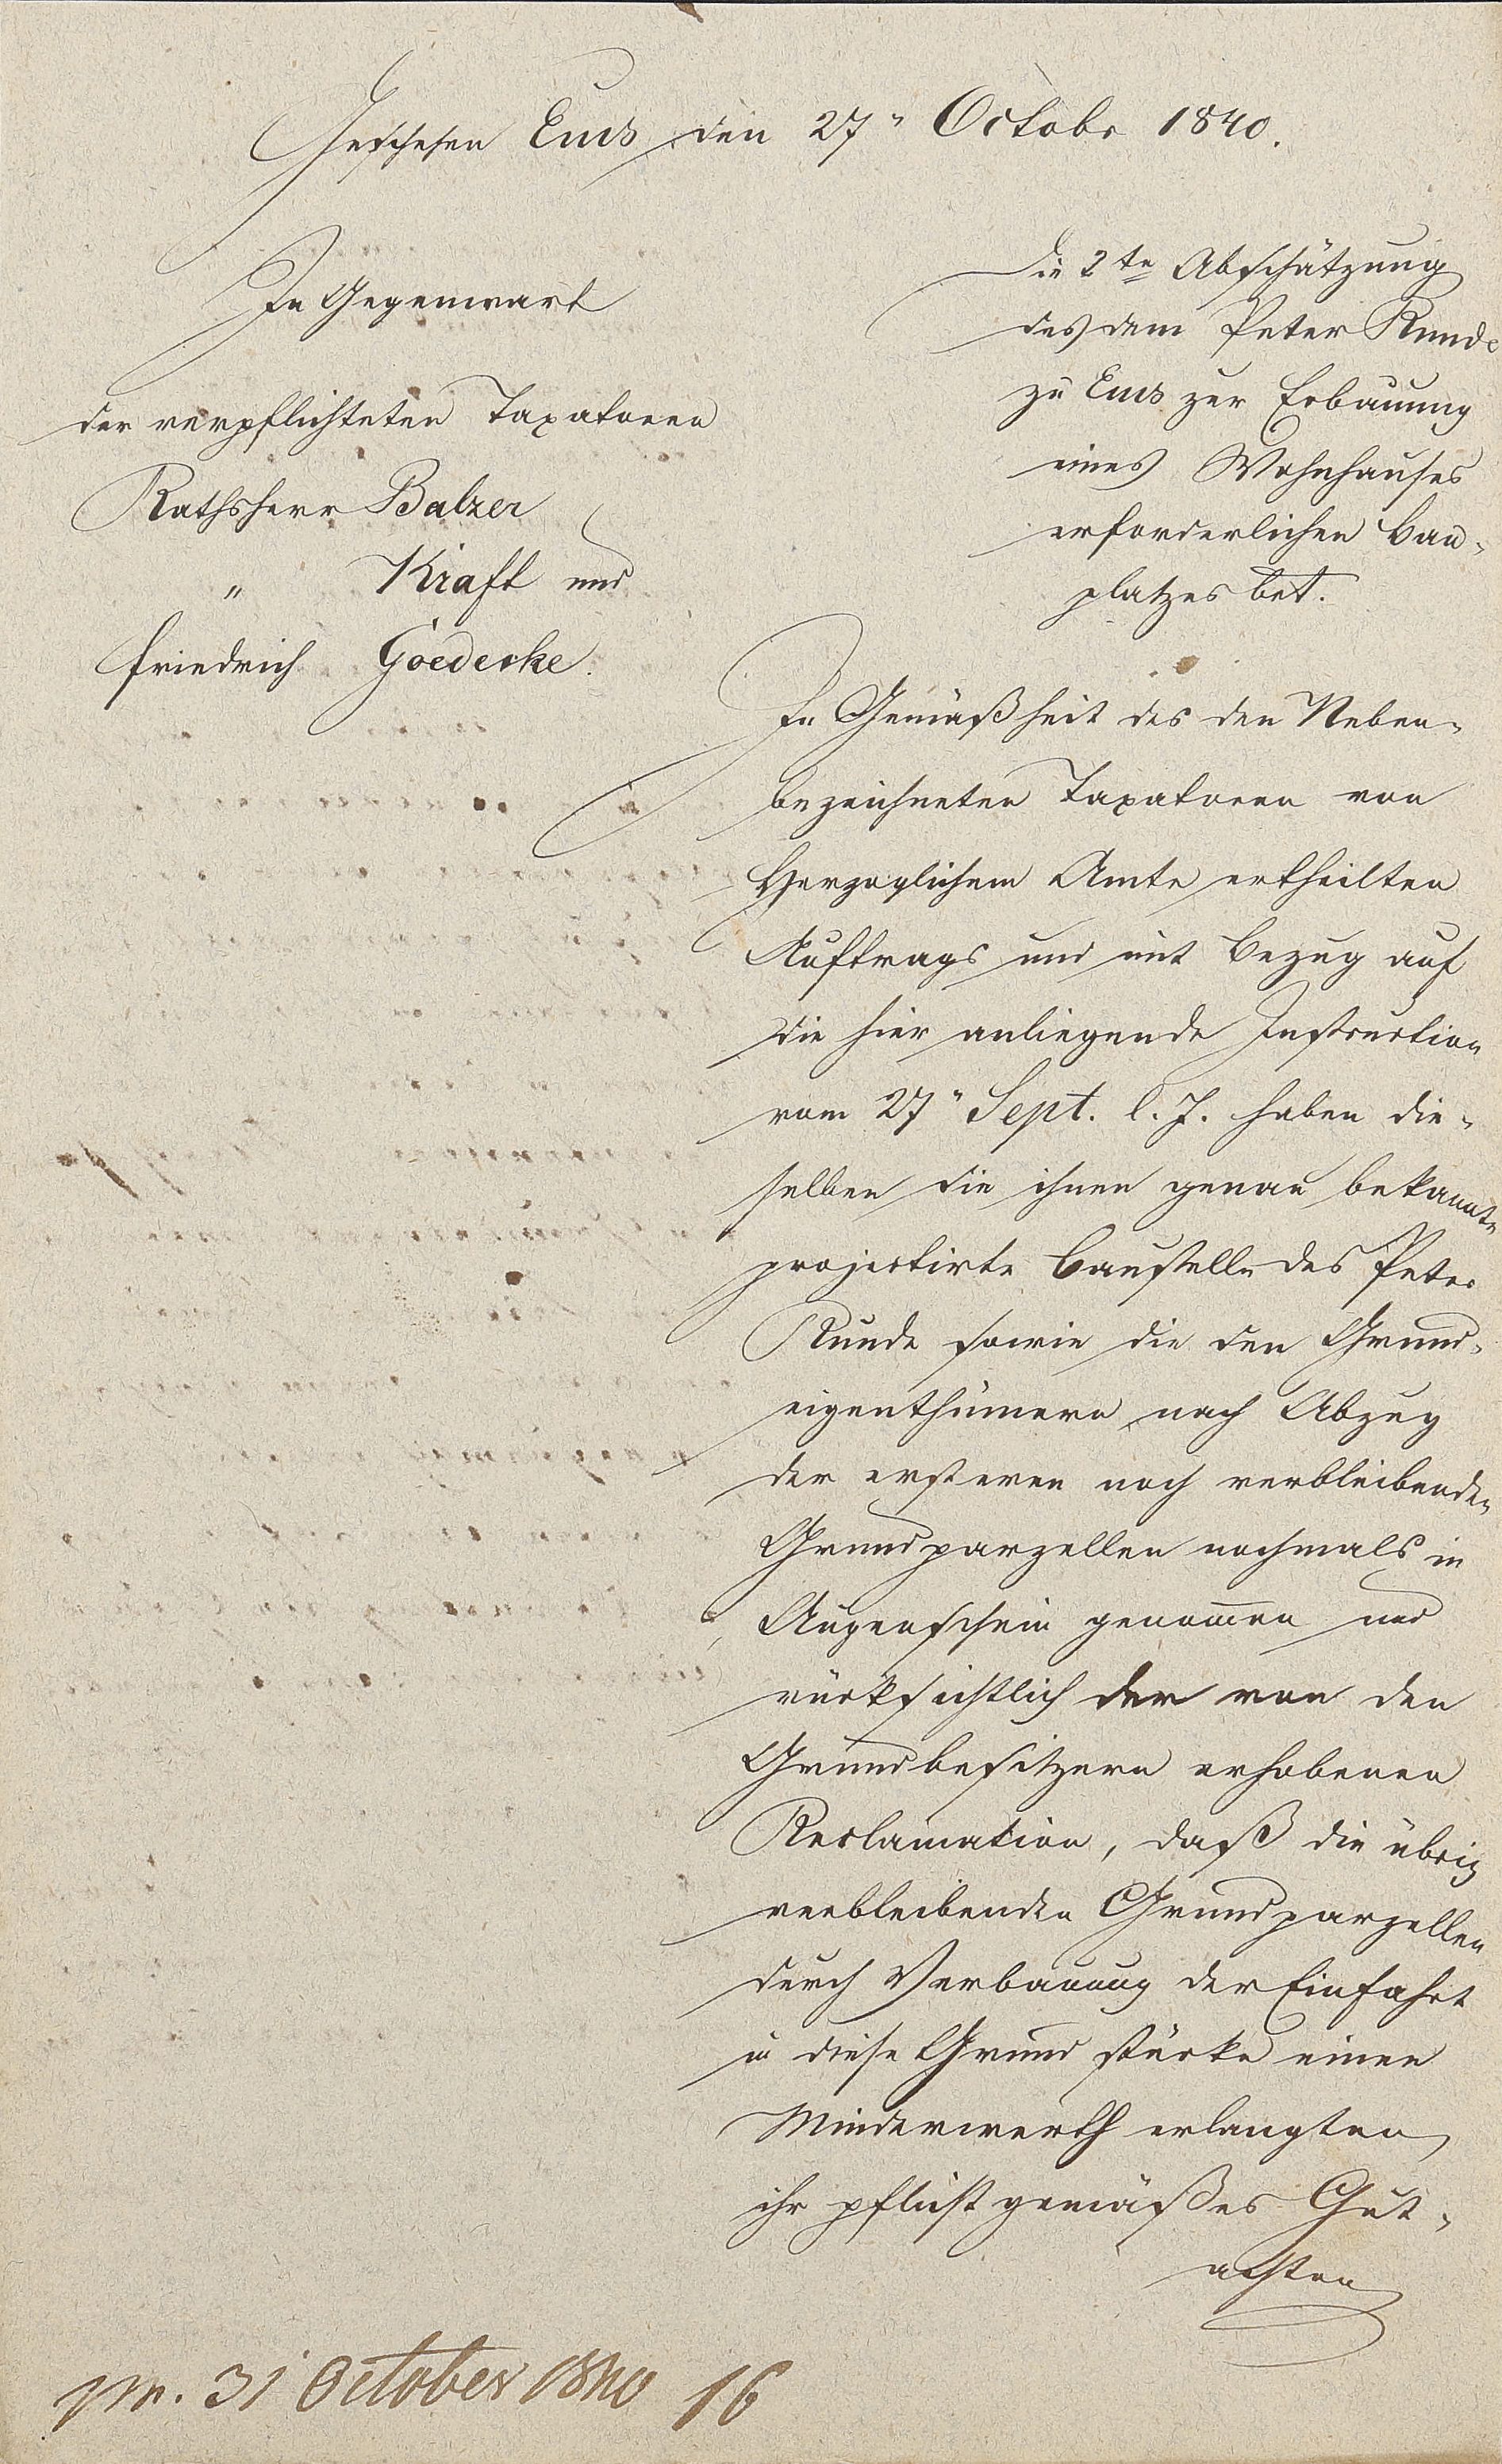 Geschehen Ems den 27" Octobr 1840.
In Gegenwart
der verpflichteten Taxatoren
Rathsherr Balzer
" Kraft und
Friedrich Goedecke.
Die 2te Abschätzung
des dem Peter Runde
zu Ems zur Erbauung
eines Wohnhauses
erforderlichen Bau-
platzes bet.
In Gemäßheit des den Neben-
bezeichneten Taxatoren von
Herzoglichem Amte ertheilten
Auftrags und mit Bezug auf
die hier anliegende Instruction
vom 27" Sept. l. J. haben die-
selben die ihnen genau bekannte
projectirte Baustelle des Peter
Runde sowie die den Grund-
eigenthümern nach Abzug
der ersteren noch verbleibenden
Grundparzellen nochmals in
Augenschein genommen und
rücksichtlich der von den
Grundbesitzern erhobenen
Reclamation, daß die übrig
verbleibenden Grundparzellen
durch Verbauung der Einfahrt
in diese Grundstücke einen
Minderwerth erlangten,
ihr pflichtgemäßes Gut-
achten
pr. 31 October 1840 16